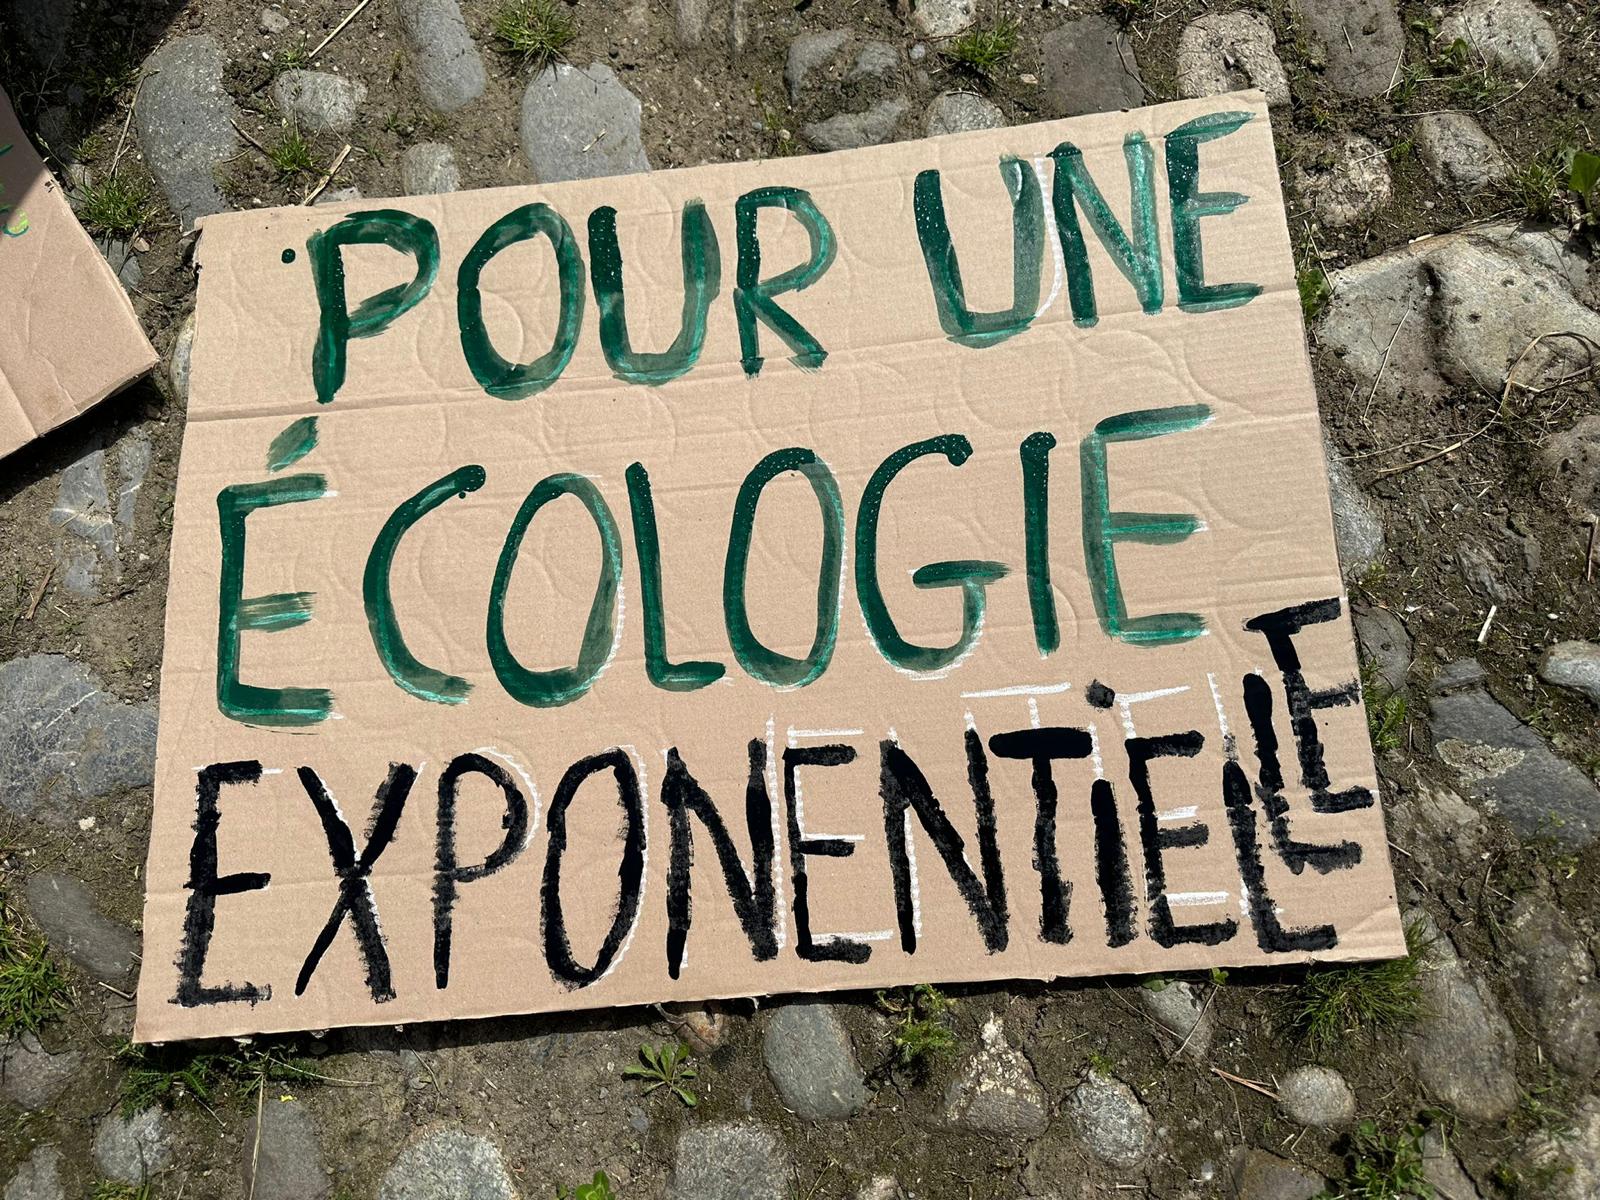 POUR UNE
ÉCOLOGIE
EXPONENTiELLE